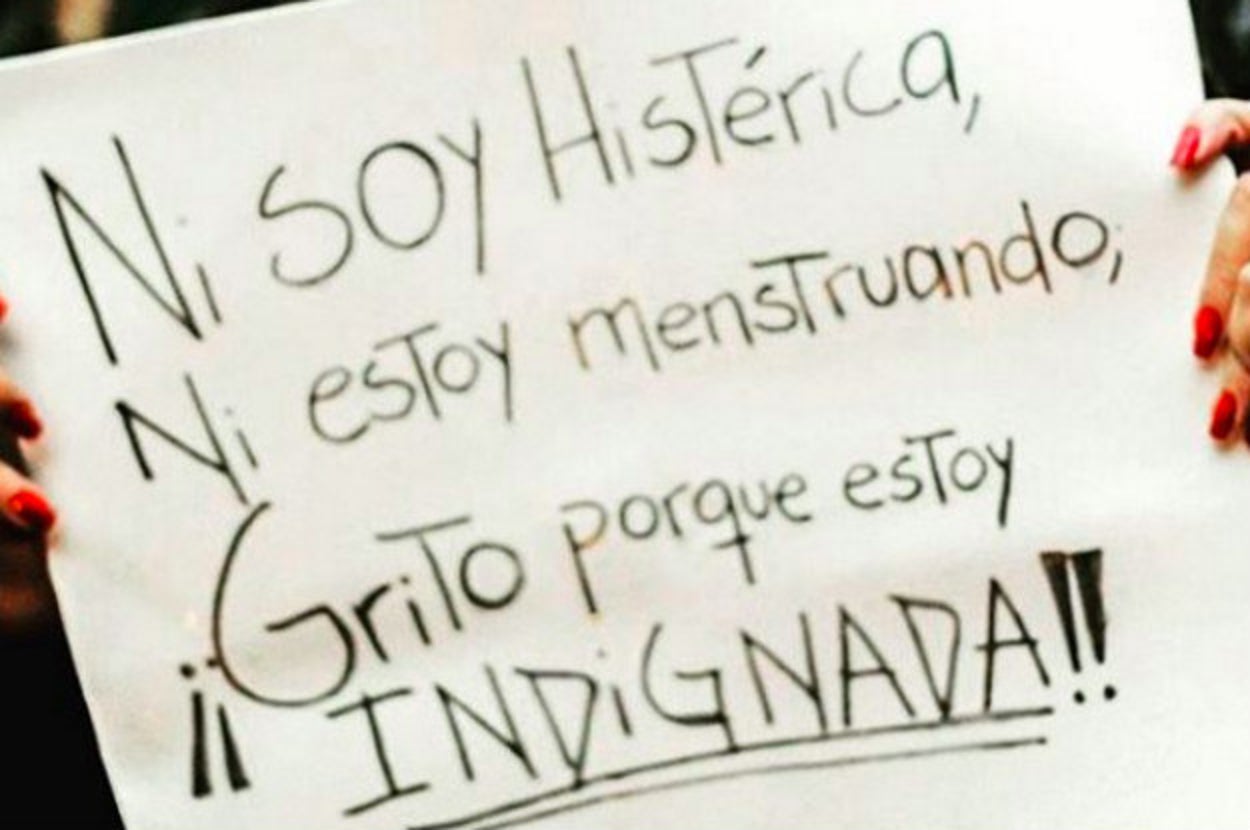 Ni soy Histérica,
Ni estoy menstruando;
¡¡Grito porque estoy
INDiGNADA!!